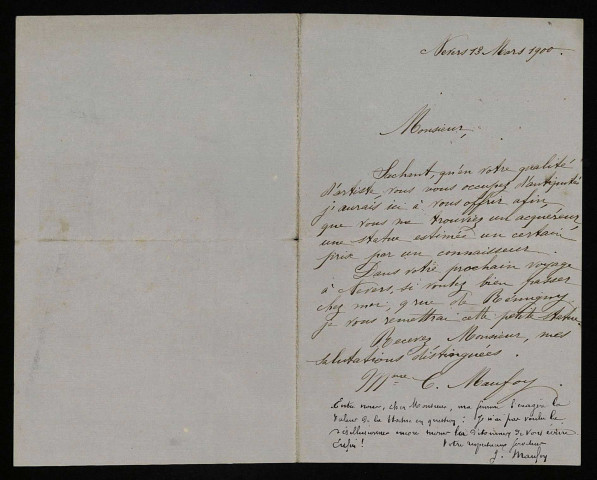 Nevers 13 Mars 1900.
Monsieur,
Sachant, qu'en votre qualité
d'artiste vous vous occupez d'antiquités
j'aurais ici à vous offrir afin
que vous me trouviez un acquéreur
une statue estimée un certain
prix par un connaisseur.
Dans votre prochain voyage
à Nevers, si voulez bien passer
chez moi, 9 rue de Rémigny
je vous remettrai cette petite statue.
Recevez, Monsieur, mes
salutations distinguées.
Mme C. Maufoy.
Entre nous, cher Monsieur, ma femme exagère la
valeur de la statue en question; je n'ai pas voulu la
encore de vous écrire
Enfin! Votre respectueux
J. Maufoy